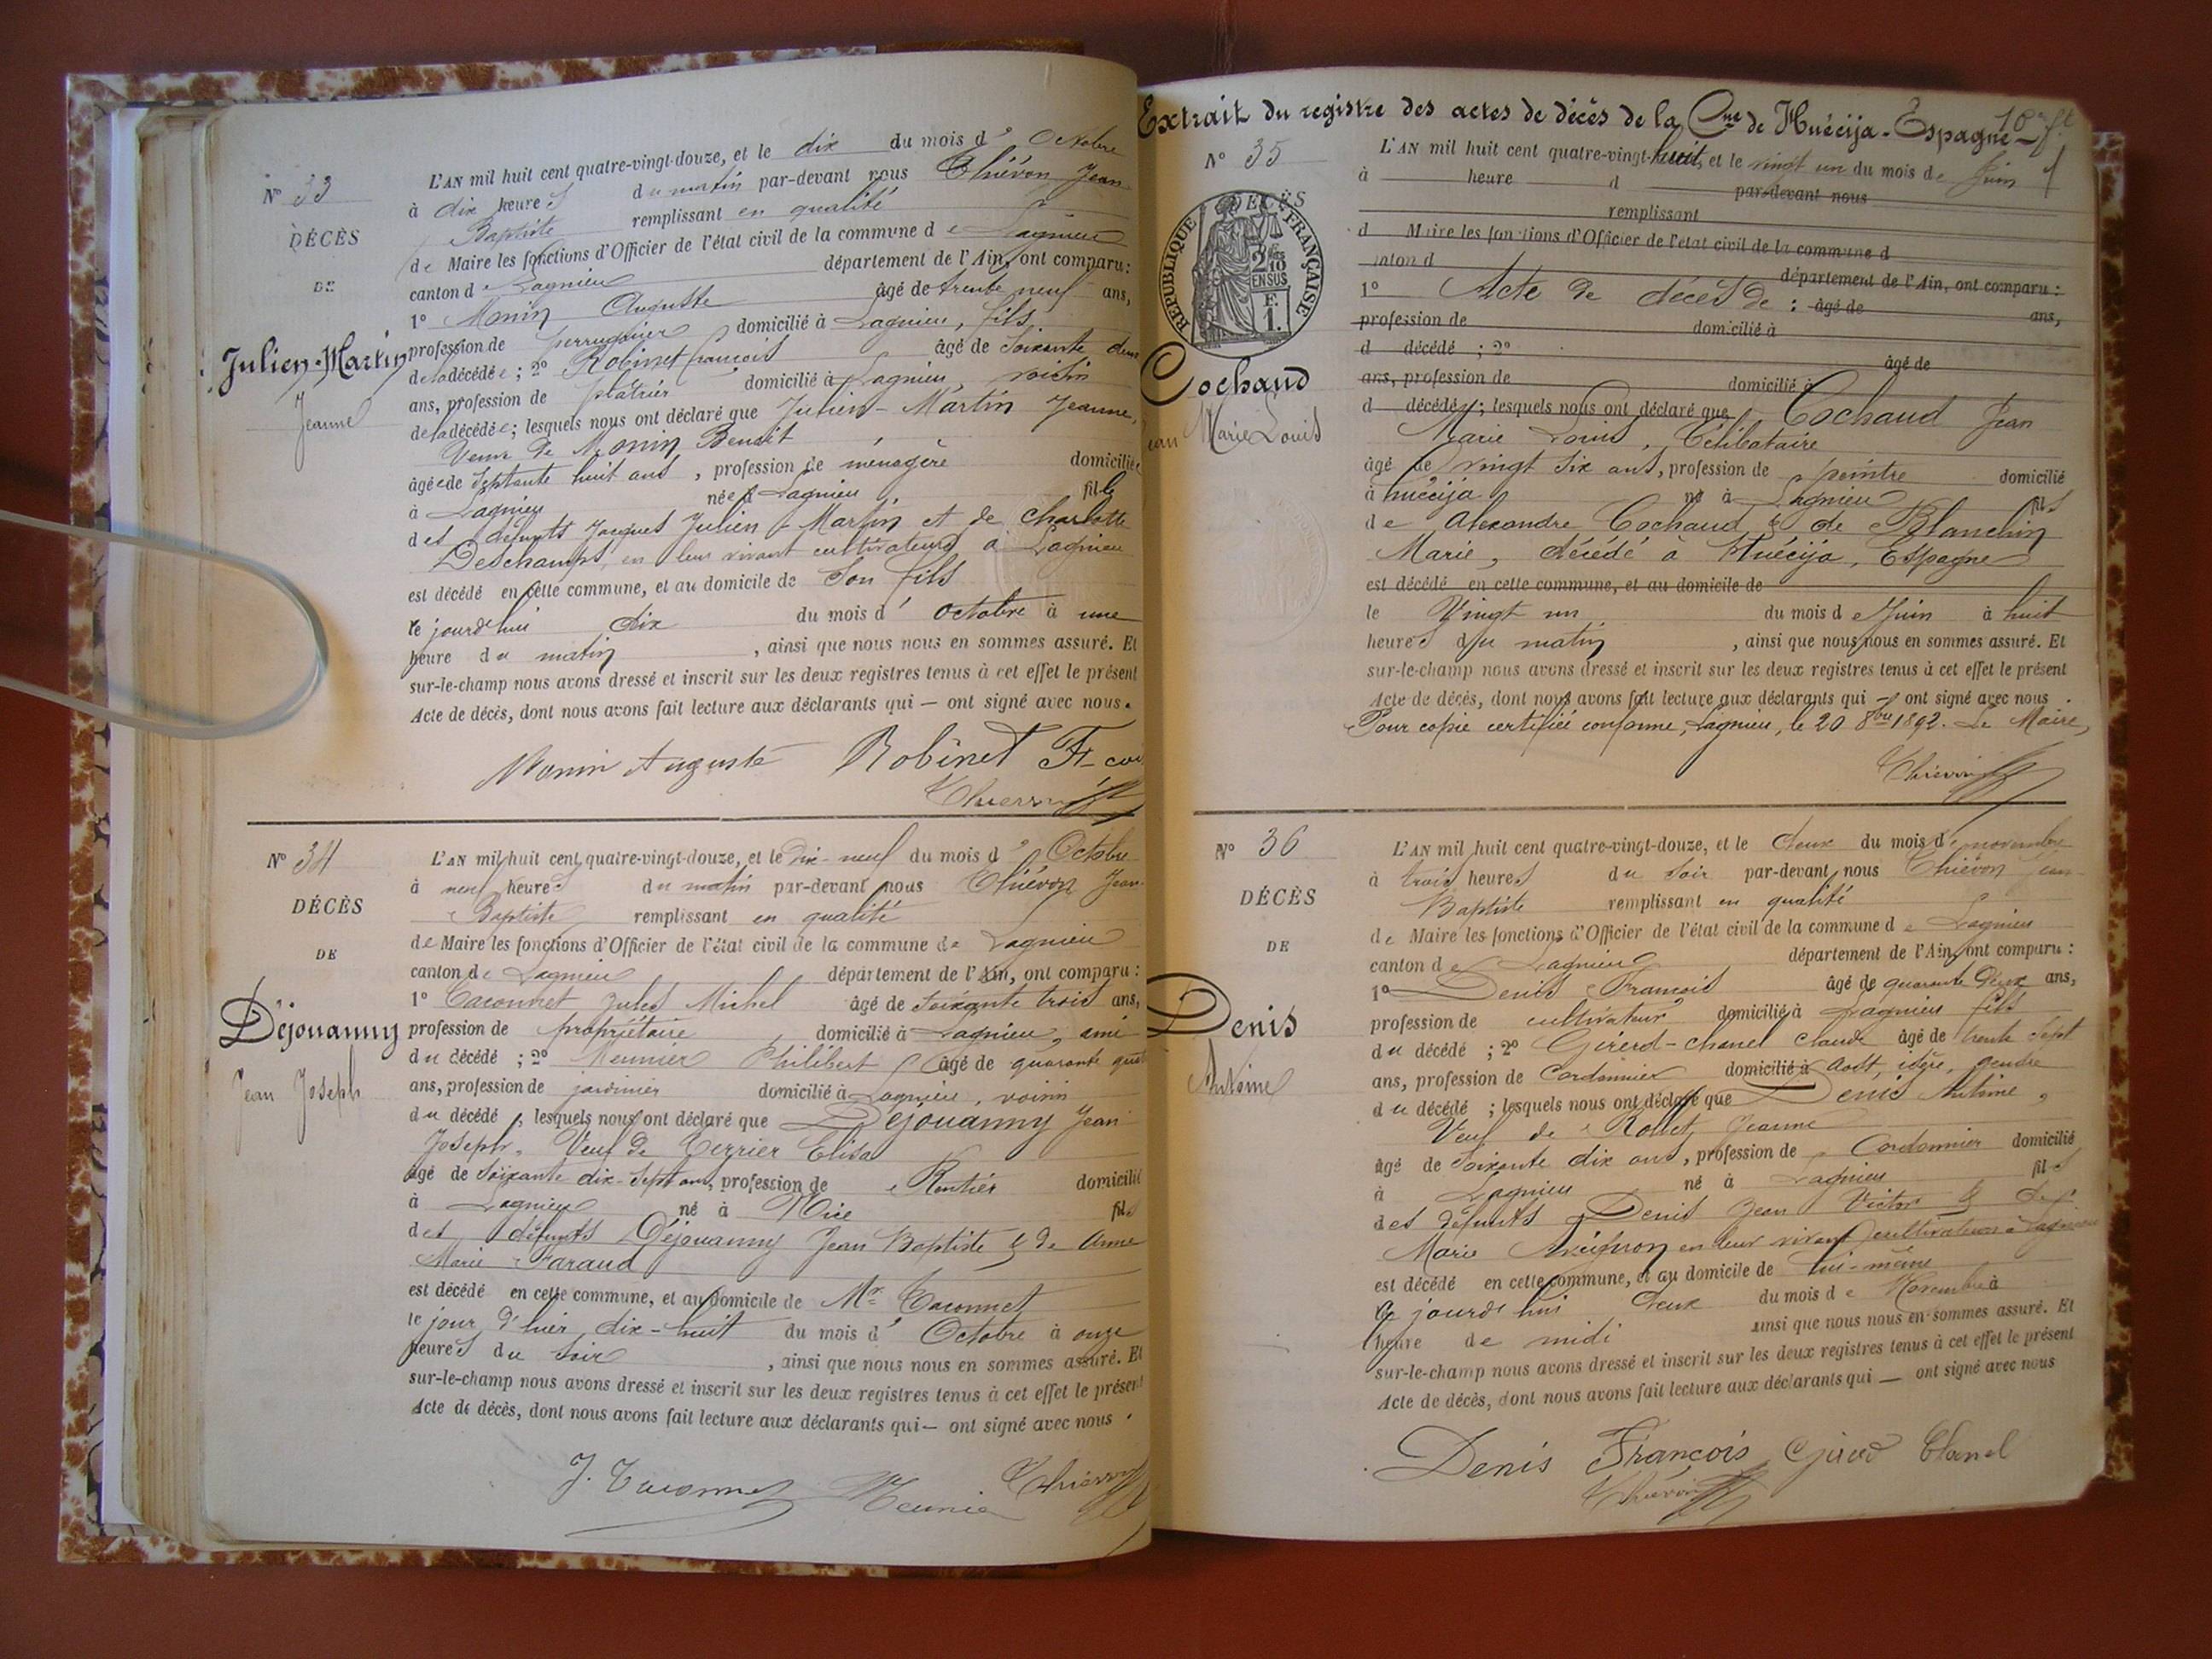 N° 33
DÉCÈS
DE
Julien-Martin
Jeanne
L'AN mil huit cent quatre-vingt-douze, et le dix du mois d' Octobre
à dix heures du matin par-devant nous Thiévon Jean-
Baptiste remplissant en qualité
de Maire les fonctions d'Officier de l'état civil de la commune de Lagnieu
canton de Lagnieu département de l'Ain, ont comparu :
1° Monin Auguste âgé de trente neuf ans,
profession de perruquier domicilié à Lagnieu, fils
de la décédée ; 2° Robinet François âgé de soixante deux
ans, profession de plâtrier domicilié à Lagnieu, voisin
de la décédée ; lesquels nous ont déclaré que Julien-Martin Jeanne,
Veuve de Monin Benoit
âgée de septante huit ans, profession de ménagère domiciliée
à Lagnieu née à Lagnieu fille
des défunts Jacques Julien-Martin et de Charlotte
Deschamps, en leur vivant cultivateurs à Lagnieu
est décédé en cette commune, et au domicile de Son fils
le jourd'hui dix du mois d' octobre à une
heure du matin, ainsi que nous nous en sommes assuré. Et
sur-le-champ nous avons dressé et inscrit sur les deux registres tenus à cet effet le présent
Acte de décès, dont nous avons fait lecture aux déclarants qui — ont signé avec nous.
Monin Auguste Robinet
Thiévon
N° 34
DÉCÈS
DE
Déjouanny
Jean Joseph
L'AN mil huit cent quatre-vingt-douze, et le dix-neuf du mois d' Octobre
à neuf heures du matin par-devant nous Thiévon Jean-
Baptiste remplissant en qualité
de Maire les fonctions d'Officier de l'état civil de la commune de Lagnieu
canton de Lagnieu département de l'Ain, ont comparu :
1° Caconnet Jules Michel âgé de soixante trois ans,
profession de propriétaire domicilié à Lagnieu, ami
du décédé ; 2° Meunier Philibert âgé de quarante
ans, profession de jardinier domicilié à Lagnieu, voisin
du décédé ; lesquels nous ont déclaré que Déjouanny Jean
Joseph, Veuf de Terrier Elisa
âgé de soixante dix-sept ans, profession de Rentier domicilié
à Lagnieu né à Nice fils
des défunts Déjouanny Jean Baptiste & de Anne
Marie Faraud
est décédé en cette commune, et au domicile de Mr Caconnet
le jour d'hier dix-huit du mois d' Octobre à onze
heures du soir, ainsi que nous nous en sommes assuré. Et
sur-le-champ nous avons dressé et inscrit sur les deux registres tenus à cet effet le présent
Acte de décès, dont nous avons fait lecture aux déclarants qui — ont signé avec nous.
J. Caconnet Meunier Thiévon
Extrait du registre des actes de décès de la Cne de Huécija - Espagne -
N° 35
DÉCÈS
RÉPUBLIQUE FRANÇAISE
2/10
EN SUS
F.
1.
Cochaud
Jean Marie Louis
L'AN mil huit cent quatre-vingt-huit, et le vingt un du mois de Juin
à heure d par-devant nous
remplissant
d Maire les fonctions d'Officier de l'état civil de la commune d
canton d département de l'Ain, ont comparu :
1° Acte de décès de : âgé de ans,
profession de domicilié à
d décédé ; 2° âgé de
ans, profession de domicilié à
d décédé ; lesquels nous ont déclaré que Cochaud Jean
Marie Louis, Célibataire
âgé de vingt six ans, profession de peintre domicilié
à huécija né à Lagnieu fils
de Alexandre Cochaud & de Blanchin
Marie, décédé à Huécija, Espagne
est décédé en cette commune, et au domicile de
le Vingt un du mois de Juin à huit
heures du matin, ainsi que nous nous en sommes assuré. Et
sur-le-champ nous avons dressé et inscrit sur les deux registres tenus à cet effet le présent
Acte de décès, dont nous avons fait lecture aux déclarants qui ont signé avec nous
Pour copie certifiée conforme, Lagnieu, le 20 8bre 1892. Le Maire,
Thiévon
N° 36
DÉCÈS
DE
Denis
Antoine
L'AN mil huit cent quatre-vingt-douze, et le deux du mois de novembre
à trois heures du soir par-devant nous Thiévon Jean-
Baptiste remplissant en qualité
de Maire les fonctions d'Officier de l'état civil de la commune de Lagnieu
canton de Lagnieu département de l'Ain, ont comparu :
1° Denis François âgé de quarante deux ans,
profession de cultivateur domicilié à Lagnieu fils
du décédé ; 2° Girerd-Chanel Claude âgé de trente sept
ans, profession de Cordonnier domicilié à gendre
du décédé ; lesquels nous ont déclaré que Denis Antoine,
Veuf de Rollet Jeanne
âgé de soixante dix ans, profession de Cordonnier domicilié
à Lagnieu né à Lagnieu fils
des défunts Denis Jean Victor & de
Marie en leur vivant cultivateurs à Lagnieu
est décédé en cette commune, et au domicile de lui-même
le jourd'hui deux du mois de Novembre à
heure de midi ainsi que nous nous en sommes assuré. Et
sur-le-champ nous avons dressé et inscrit sur les deux registres tenus à cet effet le présent
Acte de décès, dont nous avons fait lecture aux déclarants qui — ont signé avec nous
Denis François Girerd Chanel
Thiévon